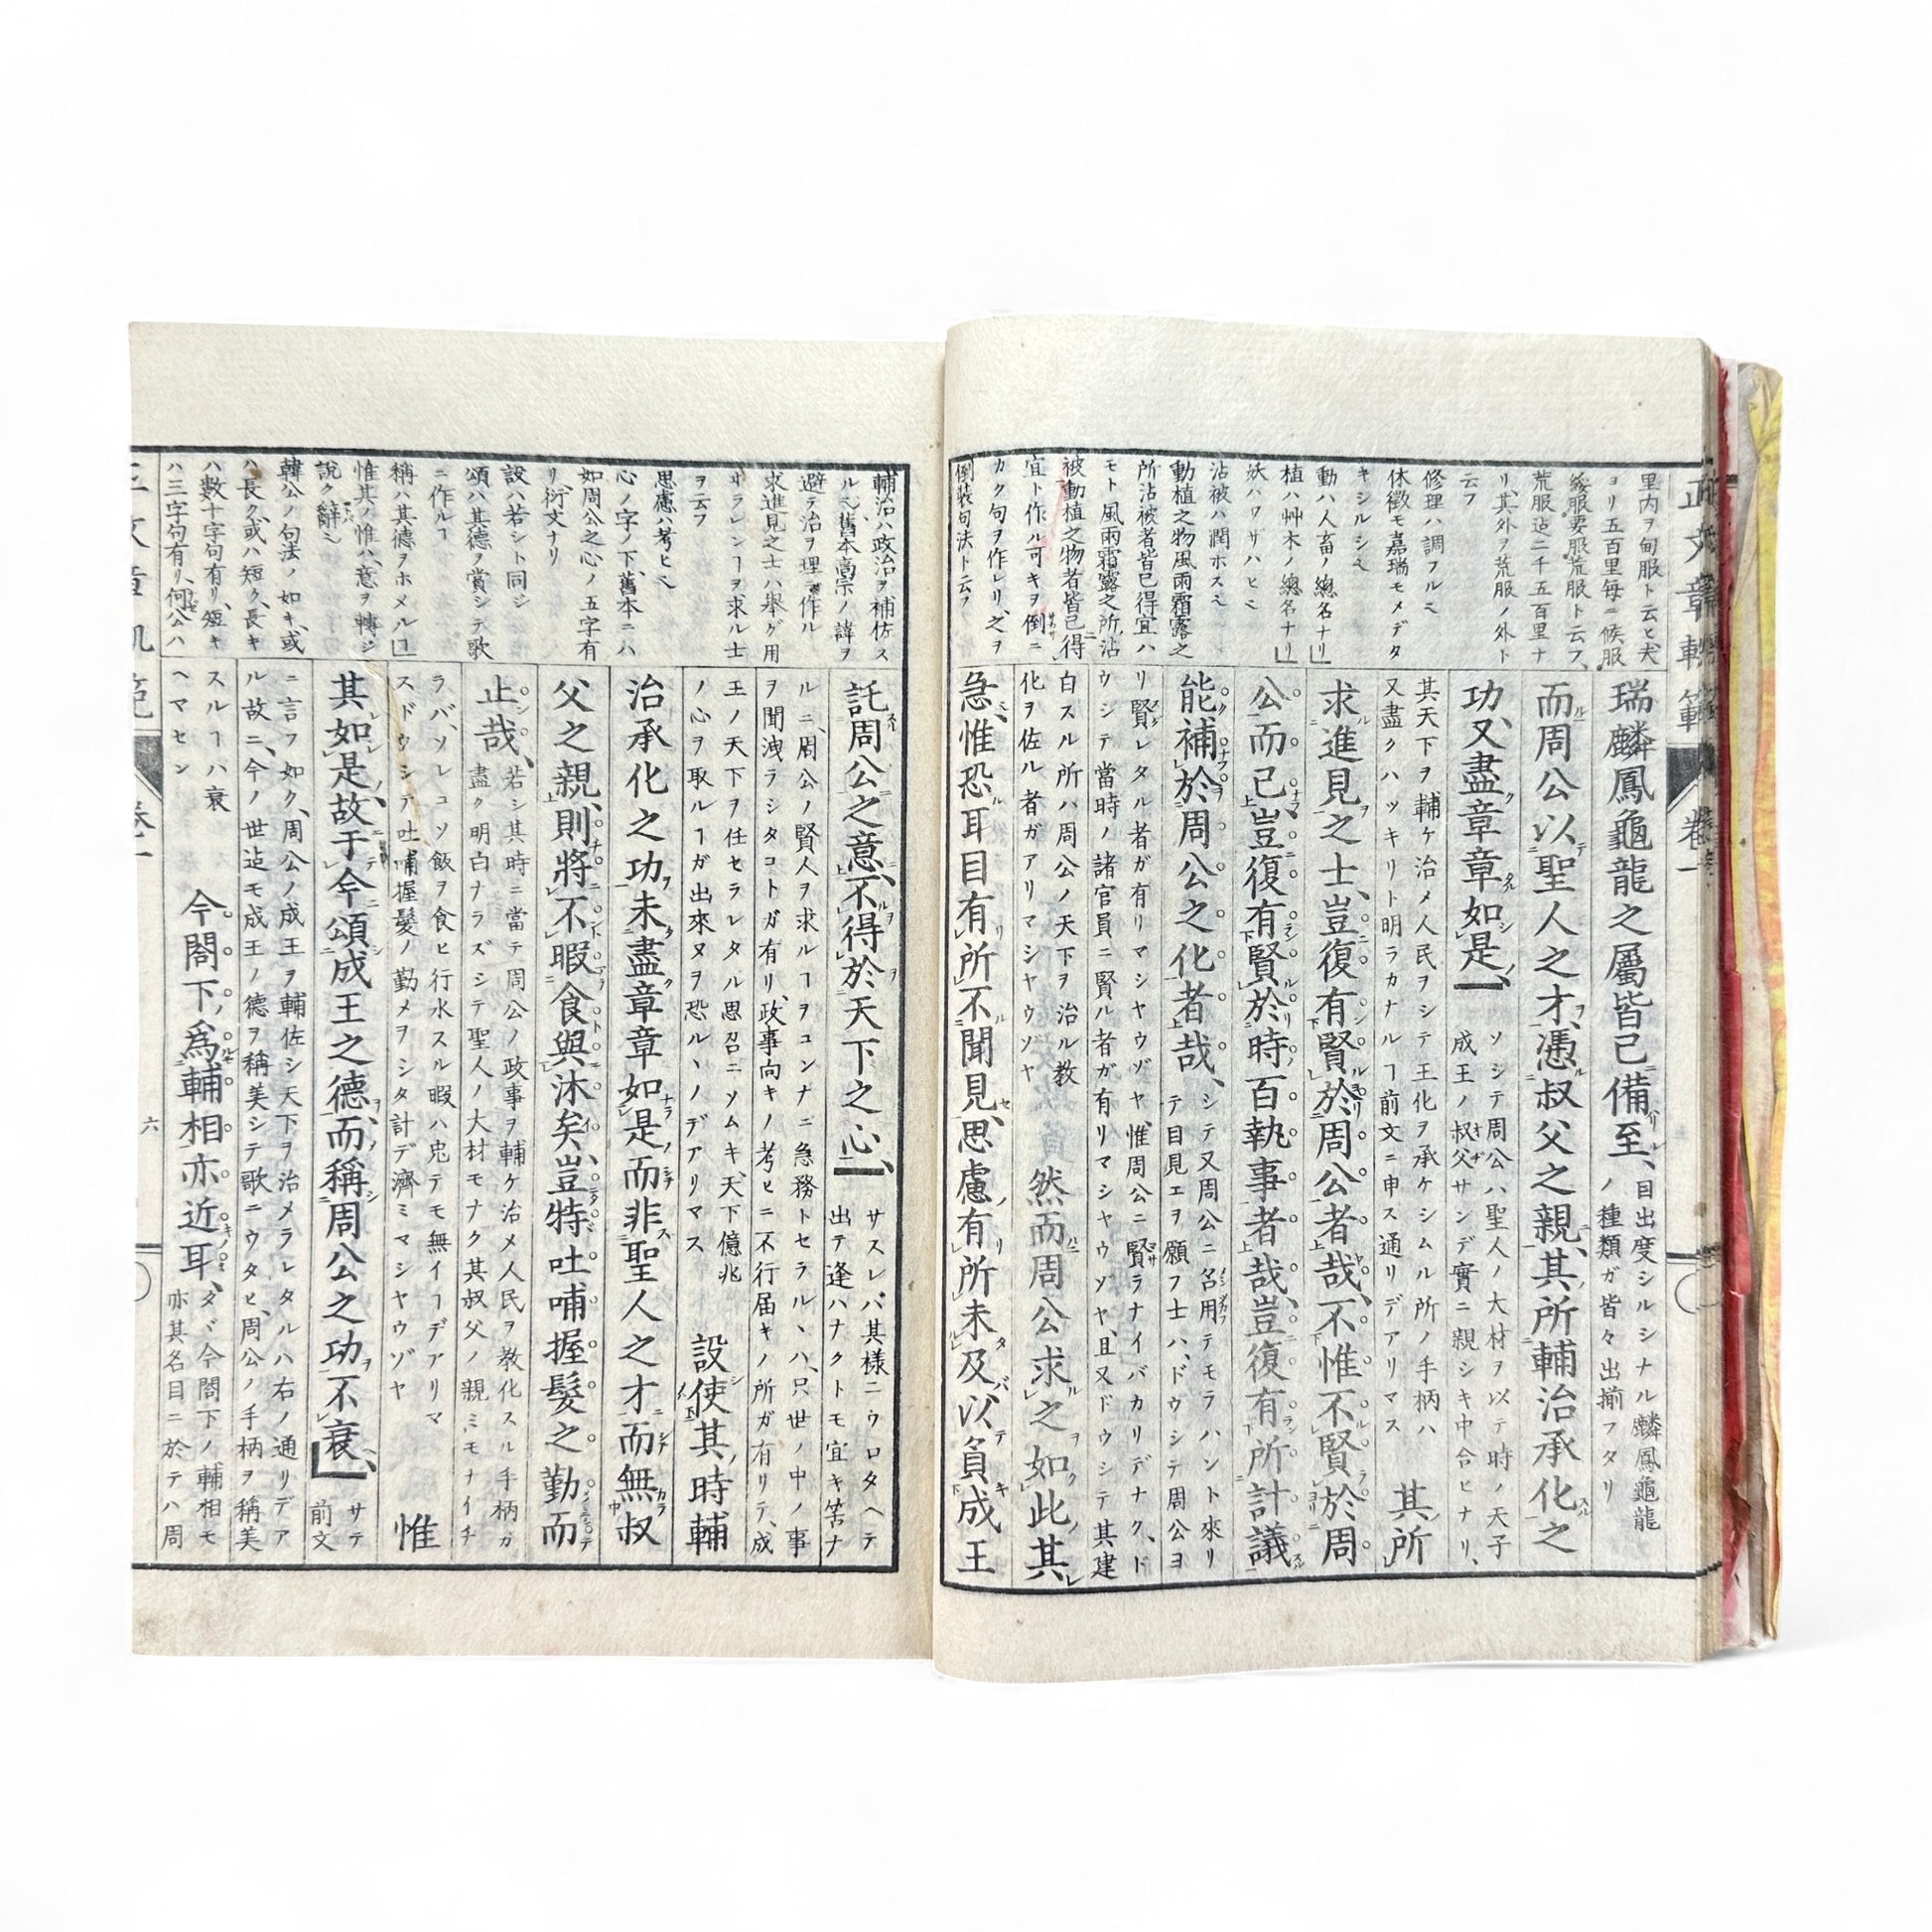 正文章軌範 卷一
里内ヲ甸服ト云ヒ夫
ヨリ五百里毎ニ候服
綏服要服荒服ト云フ、
荒服迠二千五百里ナ
リ、其外ヲ荒服ノ外ト
云フ
修理ハ調フル也
休徴モ嘉瑞モメデタ
キシルシ也
動ハ人畜ノ總名ナリ
植ハ艸木ノ總名ナリ
妖ハワザハヒ也
沾被ハ潤ホス也
動植之物風雨霜露之
所沾被者皆已得宜ハ
モト風雨霜露之所沾
被動植之物者皆已得
宜ト作ル可キヲ倒ニ
カク句ヲ作レリ、之ヲ
倒裝句法ト云フ
瑞麟鳳龜龍之屬皆已備至、目出度シルシナル麟鳳龜龍
ノ種類ガ皆々出揃フタリ
而周公以聖人之才、憑叔父之親、其所輔治承化之
功、又盡章章如是、ソシテ周公ハ聖人ノ大材ヲ以テ時ノ天子
成王ノ叔父サンデ實ニ親シキ中合ヒナリ、
其天下ヲ輔ケ治メ人民ヲシテ王化ヲ承ケシムル所ノ手柄ハ
又盡クハツキリト明ラカナルヿ前文ニ申ス通リデアリマス
其所
求進見之士、豈復有賢於周公者哉、不惟不賢於周
公而已、豈復有賢於時百執事者哉、豈復有所計議
能補於周公之化者哉、シテ又周公ニ名用テモラハント來リ
テ目見エヲ願フ士ハ、ドウシテ周公ヨ
リ賢レタル者ガ有リマシヤウゾヤ、惟周公ニ賢ラナイバカリデナク、ド
ウシテ當時ノ諸官員ニ賢ル者ガ有リマシヤウゾヤ、且又ドウシテ其建
白スル所ハ周公ノ天下ヲ治ル教
化ヲ佐ル者ガアリマシヤウゾヤ
然而周公求之如此其
急、惟恐耳目有所不聞見、思慮有所未及以負成王
輔治ハ政治ヲ補佐ス
ル也、舊本高宗ノ諱ヲ
避テ治ヲ理ニ作ル
求進見之士ハ擧ゲ用
サラレンヿヲ求ル士
ヲ云フ
思慮ハ考ヒ也
心ノ字ノ下、舊本ニハ
如周公之心ノ五字有
リ、衍文ナリ
設ハ若シト同ジ
頌ハ其德ヲ賞シテ歌
ニ作ルヿ
稱ハ其德ヲホメルヿ
惟其ノ惟ハ、意ヲ轉ジ
說ク辭也
韓公ノ句法ノ如キ、或
ハ長ク、或ハ短ク、長キ
ハ數十字句有リ、短キ
ハ三字句有リ、何公ハ
託周公之意、不得於天下之心、サスレバ其様ニウロタヘテ
出テ逢ハナクトモ宜キ筈ナ
ルニ、周公ノ賢人ヲ求ルヿヲコンナニ急務トセラルヽハ、只世ノ中ノ事
ヲ聞洩ラシタコトガ有リ、政事向キノ考ヒニ不行届キノ所ガ有リテ、成
王ノ天下ヲ任セラレタル思召ニソムキ、天下億兆
ノ心ヲ取ルヿガ出來ヌヲ恐ルヽノデアリマス
設使其時輔
治承化之功未盡章章如是、而非聖人之才、而無叔
父之親、則將不暇食與沐矣、豈特吐哺握髮之勤而
止哉、若シ其時ニ當テ周公ノ政事ヲ輔ケ治メ人民ヲ教化スル手柄ガ
盡ク明白ナラズシテ聖人ノ大材モナク其叔父ノ親ミモナイナ
ラバ、ソレコソ飯ヲ食ヒ行水スル暇ハ㠯テモ無イヿデアリマ
スドウシテ吐哺握髮ノ勤メヲシタ計デ濟ミマシヤウゾヤ
惟
其如是、故于今頌成王之德、而稱周公之功不衰、サテ
前文
ニ言フ如ク、周公ノ成王ヲ輔佐シ天下ヲ治メラレタルハ右ノ通リデア
ル故ニ、今ノ世迠モ成王ノ德ヲ稱美シテ歌ニウタヒ、周公ノ手柄ヲ稱美
スルヿハ衰
ヘマセン
今閤下爲輔相亦近耳、タヾ今閤下ノ輔相モ
亦其名目ニ於テハ周
六